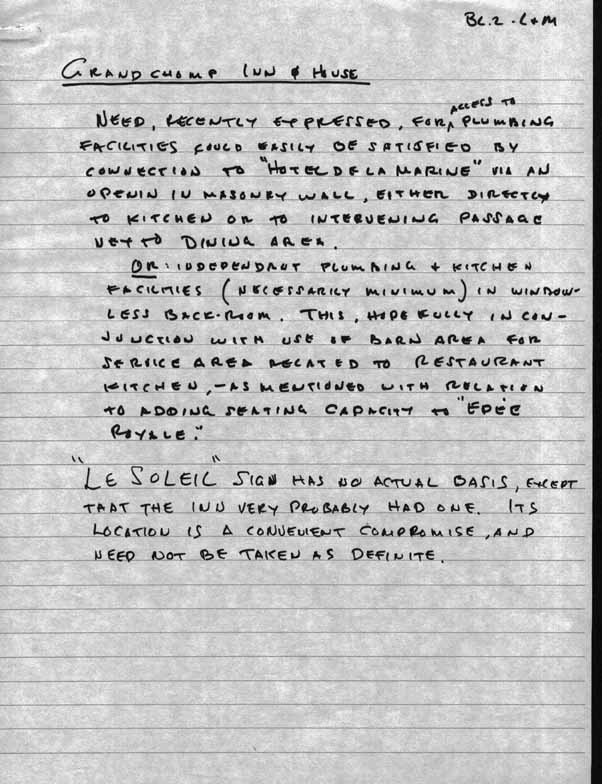 BL.2 - L+M
GRANDCHOMP INN & HOUSE
NEED, RECENTLY EXPRESSED, FOR ACCESS TO PLUMBING
FACILITIES COULD EASILY BE SATISFIED BY
CONNECTION TO "HOTEL DE LA MARINE" VIA AN
OPENIN IN MASONRY WALL, EITHER DIRECTLY
TO KITCHEN OR TO INTERVENING PASSAGE
NEXT TO DINING AREA.
OR: INDEPENDANT PLUMBING & KITCHEN
FACILITIES (NECESSARILY MINIMUM) IN WINDOW-
LESS BACK-ROOM. THIS, HOPEFULLY IN CON-
JUNCTION WITH USE OF BARN AREA FOR
SERVICE AREA RELATED TO RESTAURANT
KITCHEN, - AS MENTIONED WITH RELATION
TO ADDING SEATING CAPACITY TO "EPÉE
ROYALE."
"LE SOLEIL" SIGN HAS NO ACTUAL BASIS, EXCEPT
THAT THE INN VERY PROBABLY HAD ONE. ITS
LOCATION IS A CONVENIENT COMPROMISE, AND
NEED NOT BE TAKEN AS DEFINITE.